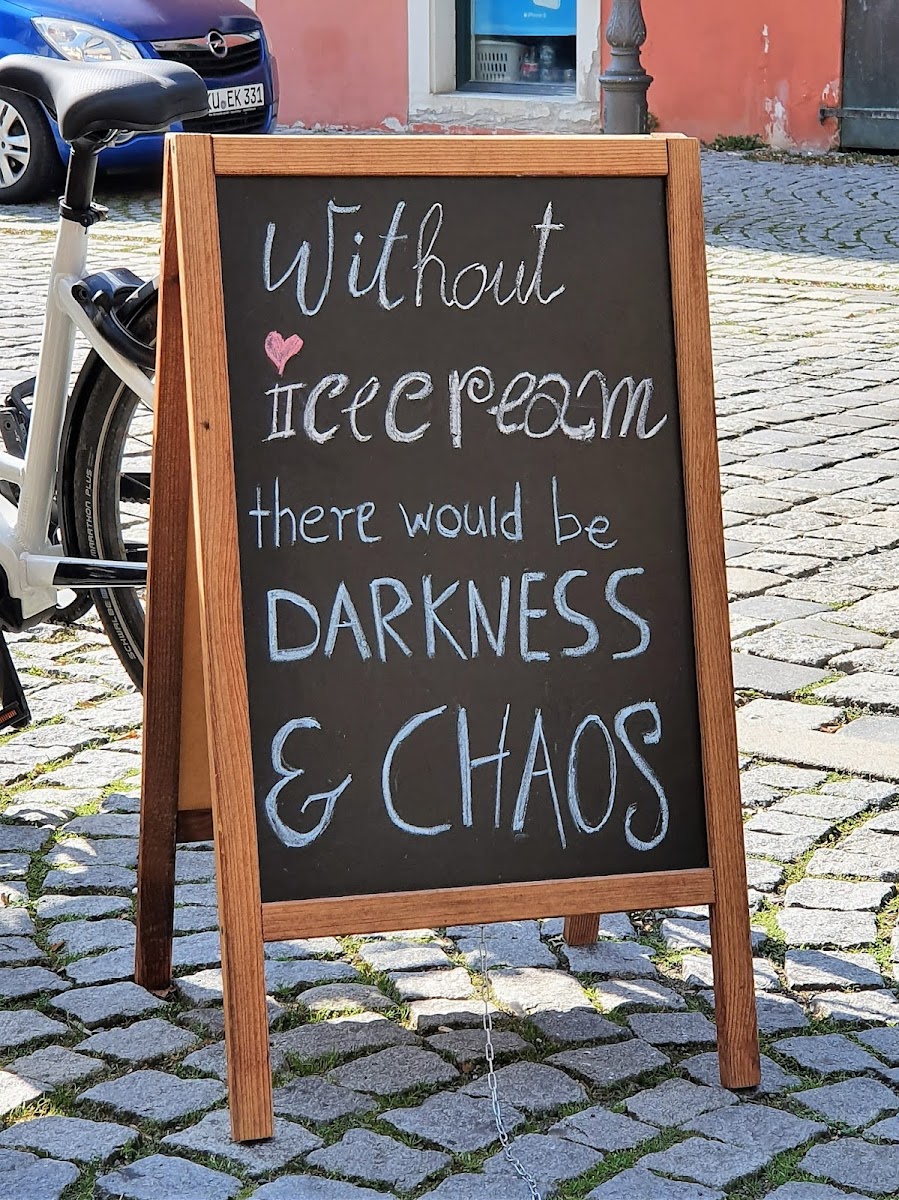 Without
icecream
there would be
DARKNESS
& CHAOS
KU EK 331
MARATHON PLUS
SCHWALBE